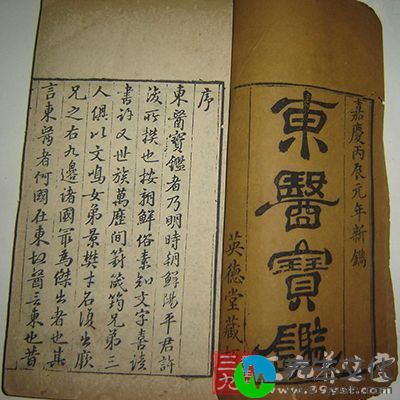 嘉慶丙辰元年新鐫
東醫寶鑑
英德堂藏
序
東醫寶鑑者乃明時朝鮮陽平君許
浚所撰也按朝鮮俗素知文字喜讀
書許又世族萬歷間篈筬筠兄弟三
人俱以文鳴女弟景樊才名復出厥
兄之右九邊諸國最為傑出者也其
言東醫者何國在東故醫言東也昔
三九养生堂
www.39yst.com